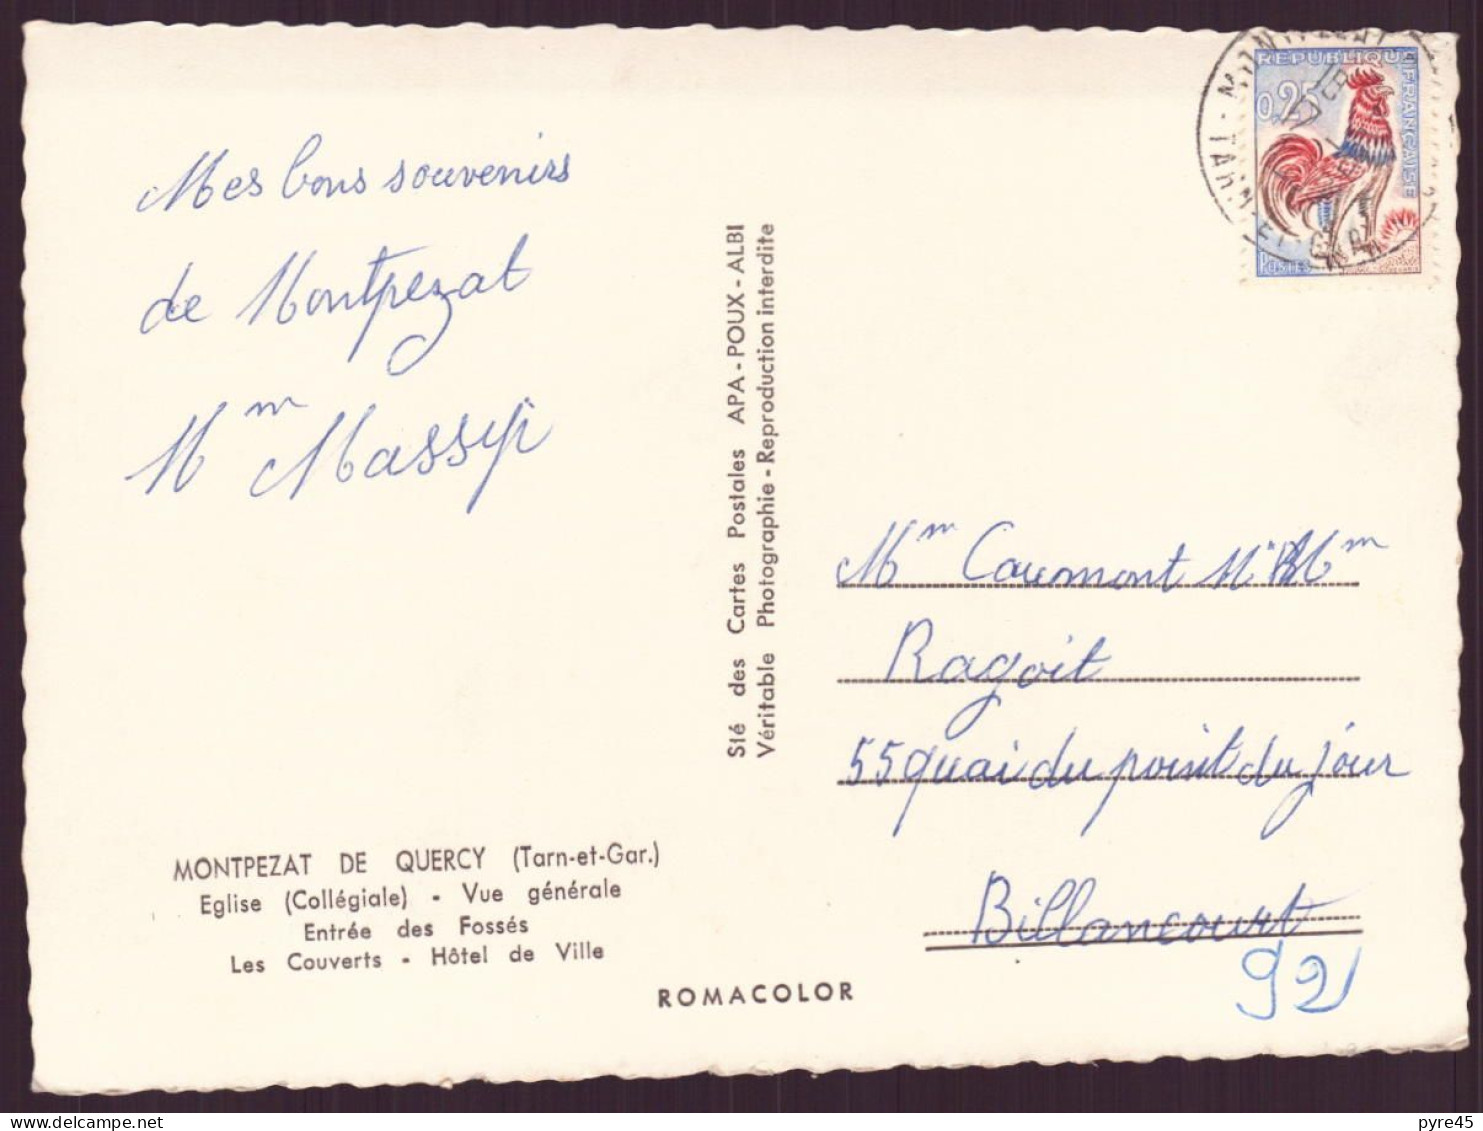 Mes bons souvenirs
de Montpezat
Mm Massip
MONTPEZAT DE QUERCY (Tarn-et-Gar.)
Eglise (Collégiale) - Vue générale
Entrée des Fossés
Les Couverts - Hôtel de Ville
ROMACOLOR
Sté des Cartes Postales APA - POUX - ALBI
Véritable Photographie - Reproduction interdite
REPUBLIQUE FRANÇAISE
0,25
POSTES
TARN-ET-
Mm Caumont Mm
Ragoit
55 quai du point du jour
Billancourt
92
pyre45